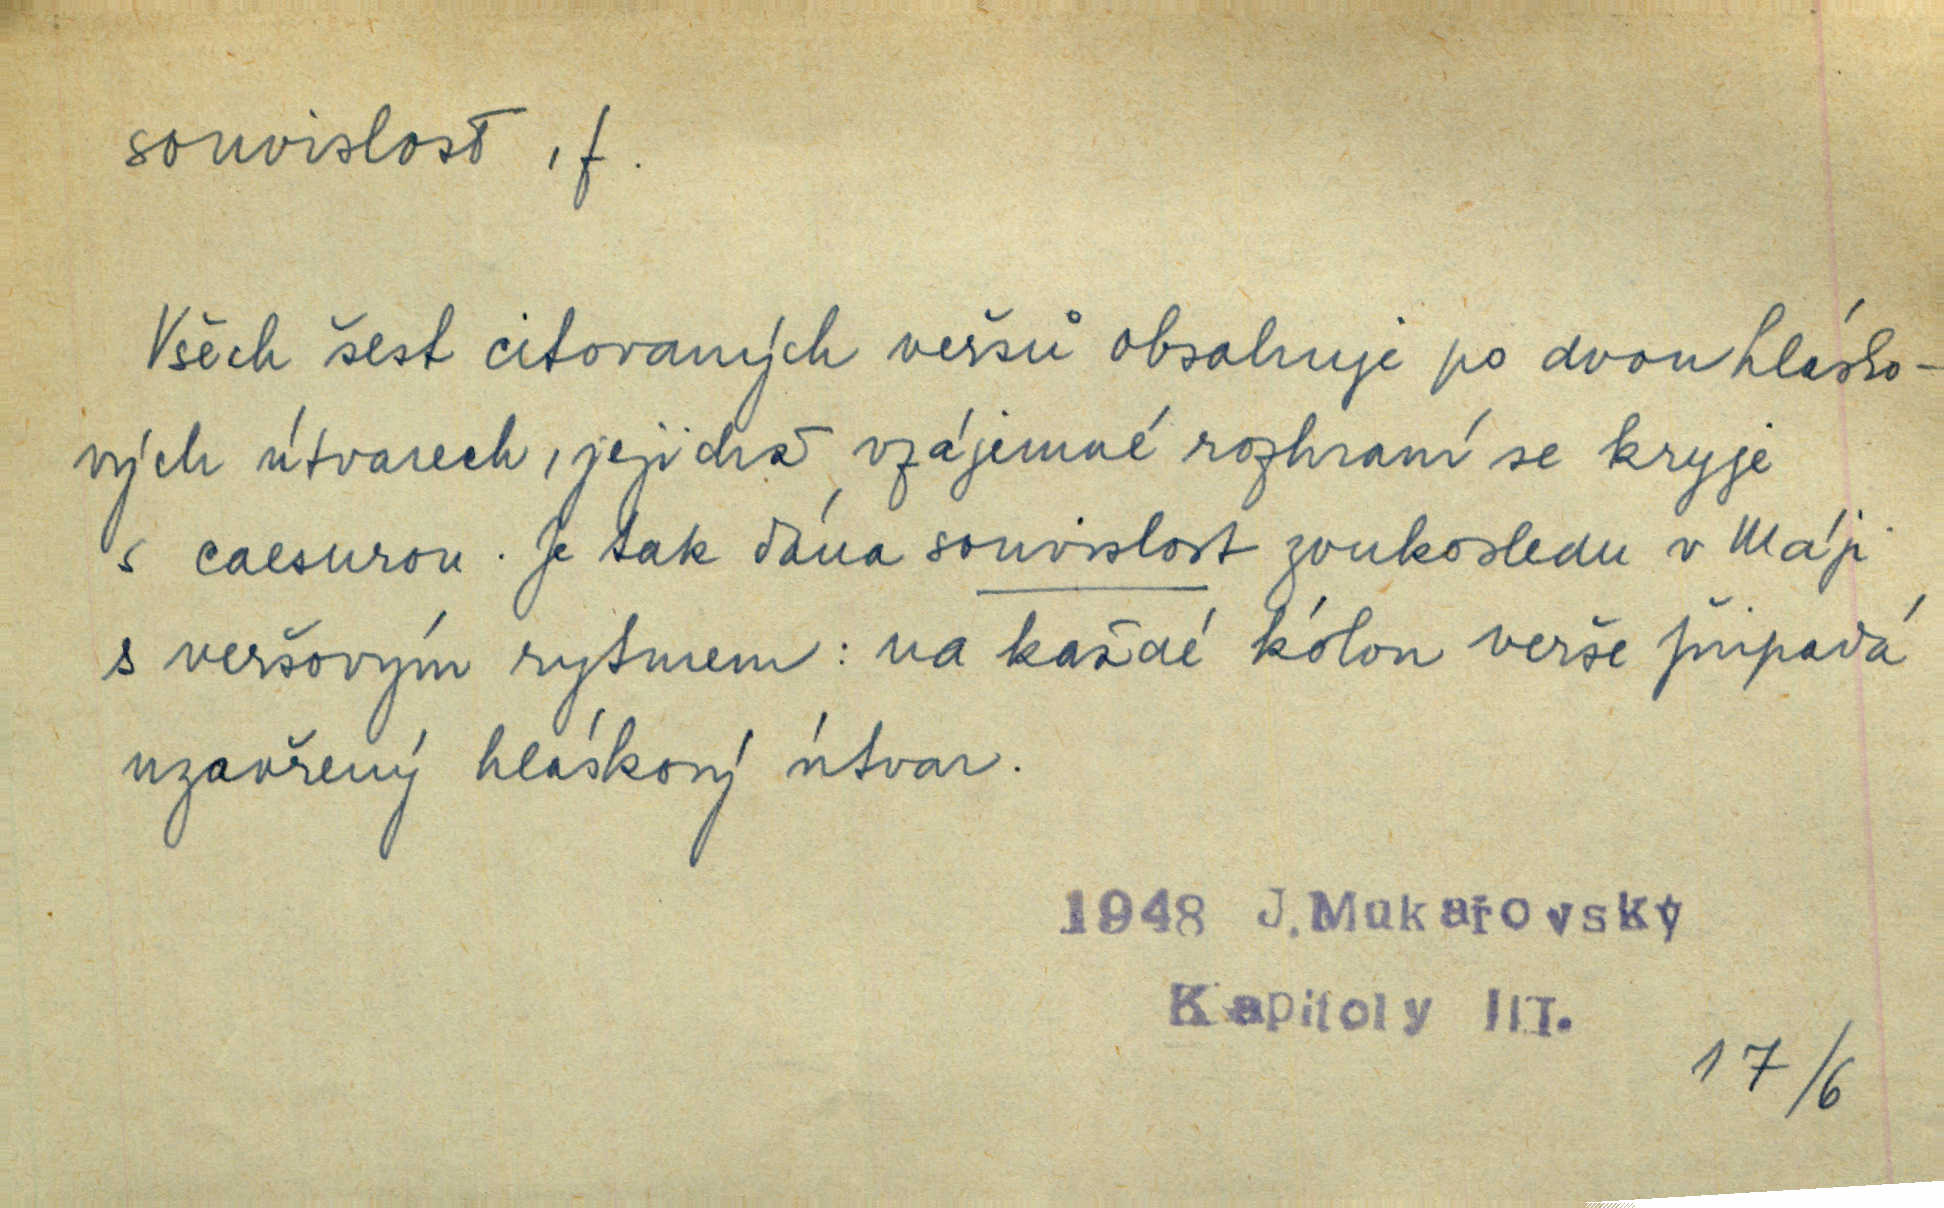 souvislost, f.
Všech šest citovaných veršů obsahuje po dvou hlásko-
vých útvarech, jejichž vzájemné rozhraní se kryje
s caesurou. Je tak dána souvislost zvukosledu v Máji
s veršovým rytmem: na každé kólon verše připadá
uzavřený hláskový útvar.
1948 J. Mukařovský
Kapitoly III.
17/6